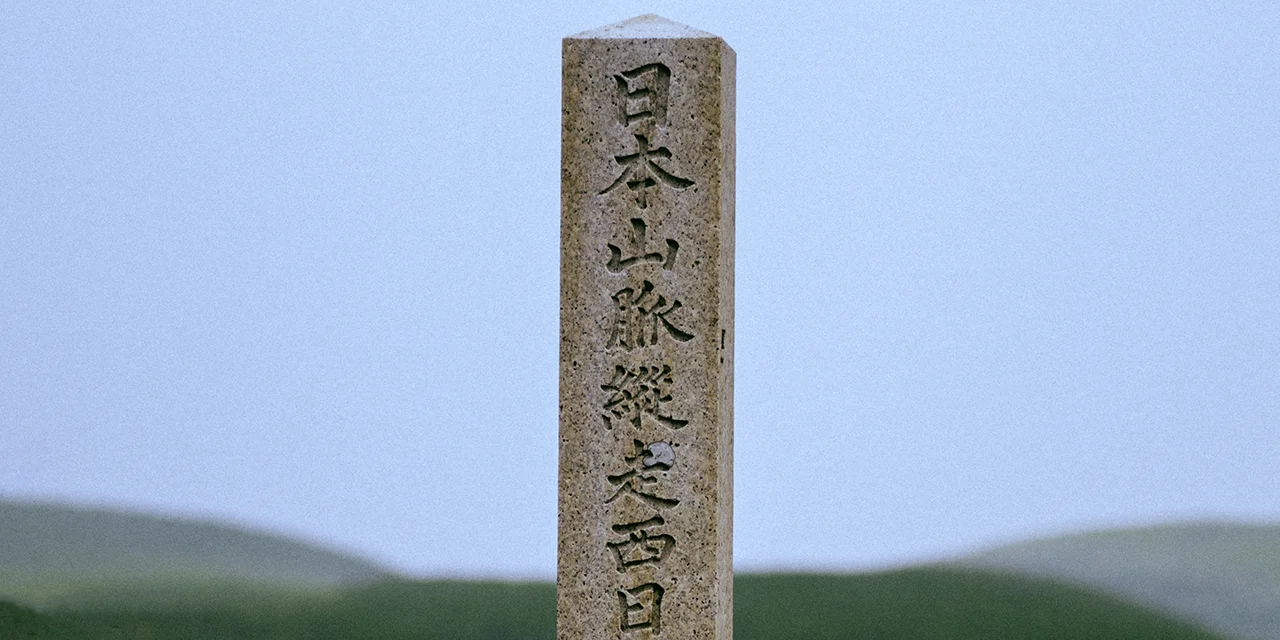 日本山脈縱走西日